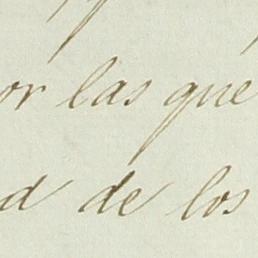 or las que
d de los